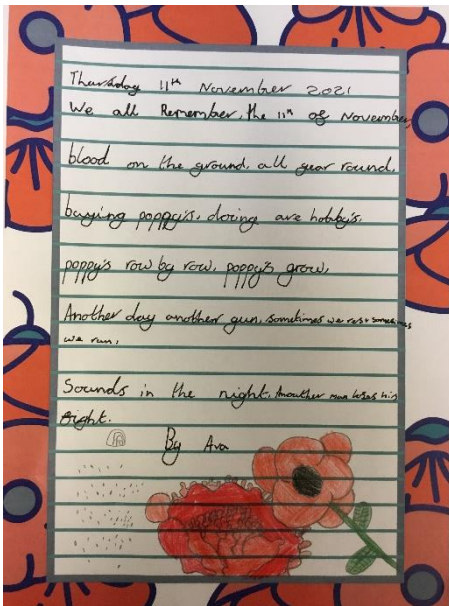 Thursday 11th November 2021
We all Remember, the 11th of November,
blood on the ground, all year round.
buying poppy's, doing are hobby's.
poppy's row by row, poppy's grow,
Another day another gun, sometimes we rest sometimes
we run,
Sounds in the night, Another man loses his
sight.
By Ava